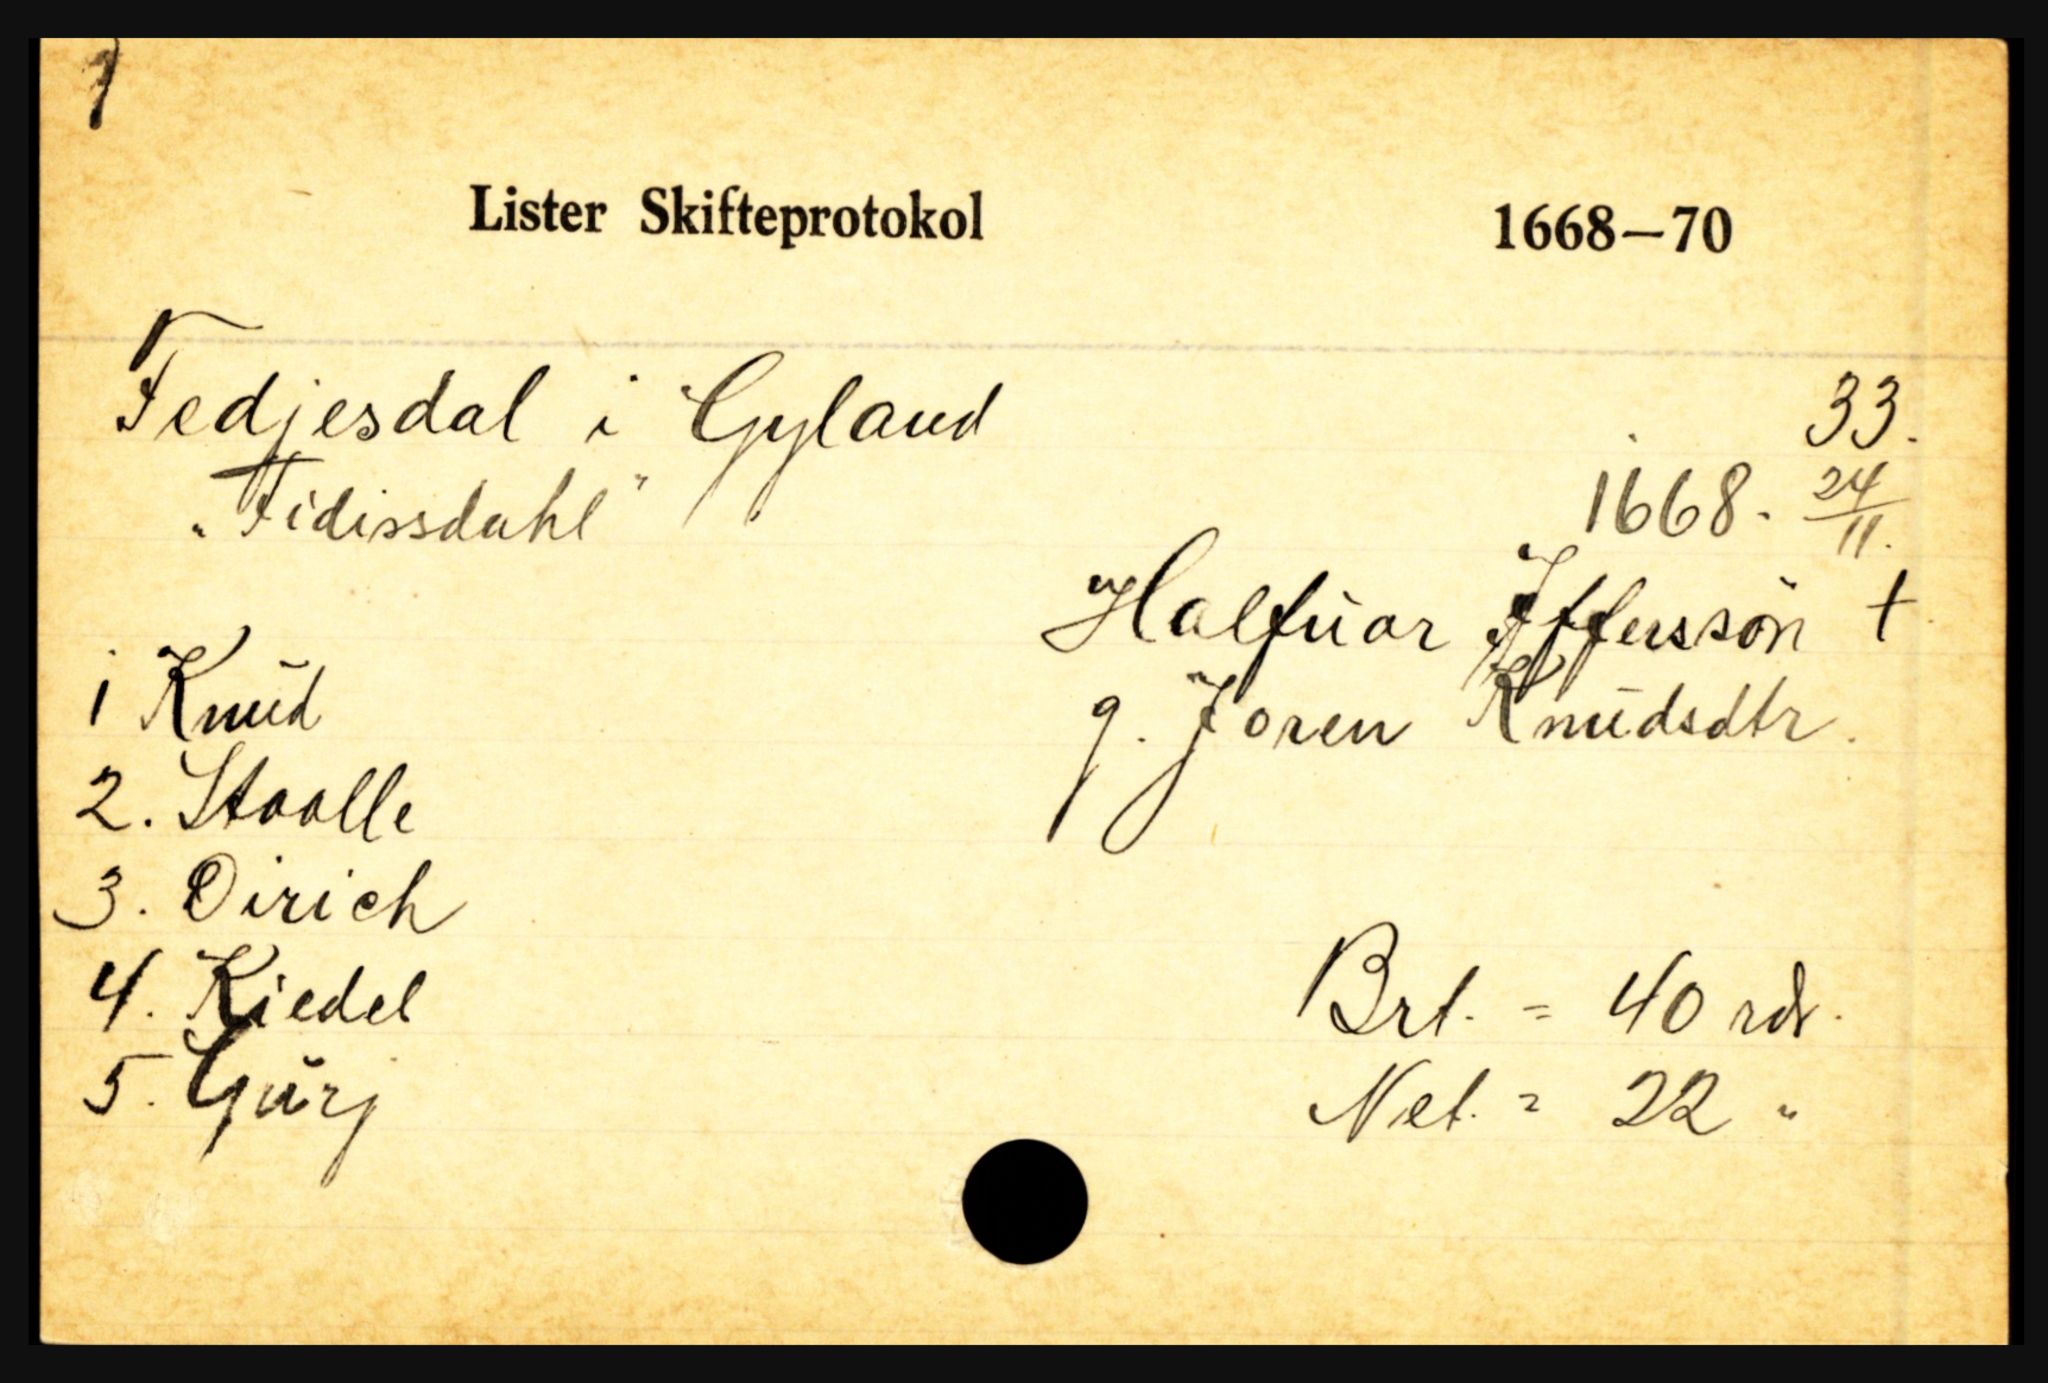 1
Lister Skifteprotokol 1668–70
Fedjesdal i Gyland 33.
"Fidissdahl" 1668. 24/11.
Halfuar Iffuerssøn †
1 Knud g. Joren Knudsdtr.
2. Staalle
3. Dirich
4. Kiedel Brt. = 40 rdr.
5. Gurj Net. = 22 "